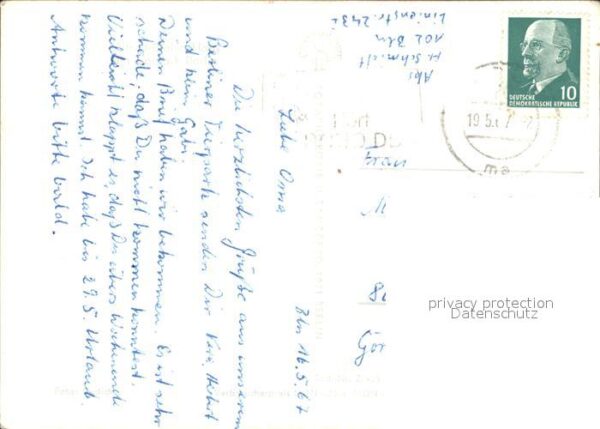 Abs
H. Schmidt
102 Bln
Linienstr. 243
DEUTSCHE
DEMOKRATISCHE REPUBLIK
10
19.5.67
Bln 16.5.67
Liebe Omma
Die herzlichsten Grüße aus unserem
Berliner Tierpark senden Dir Vera, Herbert
und klein Gabi.
Deinen Brief haben wir bekommen. Es ist sehr
schade, daß Du nicht kommen konntest.
Vielleicht klappt es, daß Du übers Wochenende
kommen kannst. Ich habe bis 29.5. Urlaub.
Antworte bitte bald.
Frau
M
Gör
privacy protection
Datenschutz